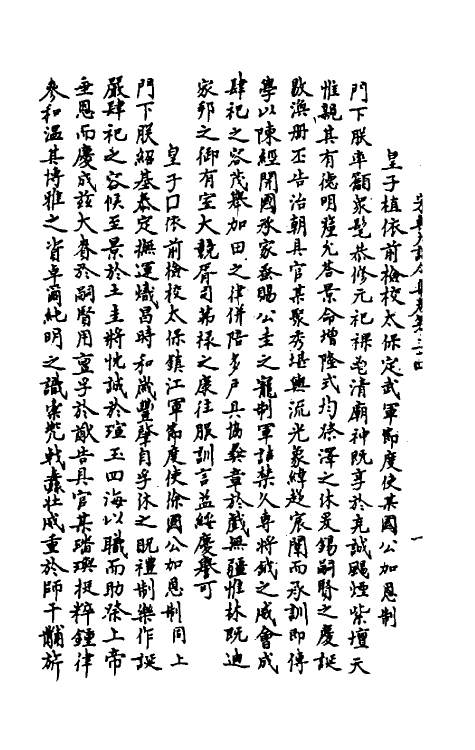 宋大詔令集卷第三十四
一
皇子植依前檢校太保定武軍節度使某國公加恩制
門下朕率籲衆髦恭修元祀祼鬯清廟神既享於克誠賜煙紫壇天
惟親其有德明確允答景命增隆式均徐澤之休爰錫嗣賢之慶誕
敭渙册丕告治朝具官某聚秀堪輿流光象緯趨宸闈而承訓即傳
學以陳經開國承家蚤賜公圭之寵制軍詰禁久專將鉞之威會成
肆祀之容茂舉加田之律併陪多戶具協彝章於戲無疆惟休既迪
家邦之御有室大競胥司茀祿之康往服訓言益綏慶譽可
皇子口依前檢校太保鎮江軍節度使徐國公加恩制 同上
門下朕紹基泰定撫運熾昌時和歲豐肇自孚休之貺禮制樂作誕
嚴肆祀之容候至景於土圭將忱誠於瑄玉四海以職而助祭上帝
垂恩而慶成茲大賚於嗣賢用亶孚於猷告具官某璠璵挺粹鍾律
參和溫其博雅之資卓爾純明之識崇兜戟纛壯威重於師干黼旂